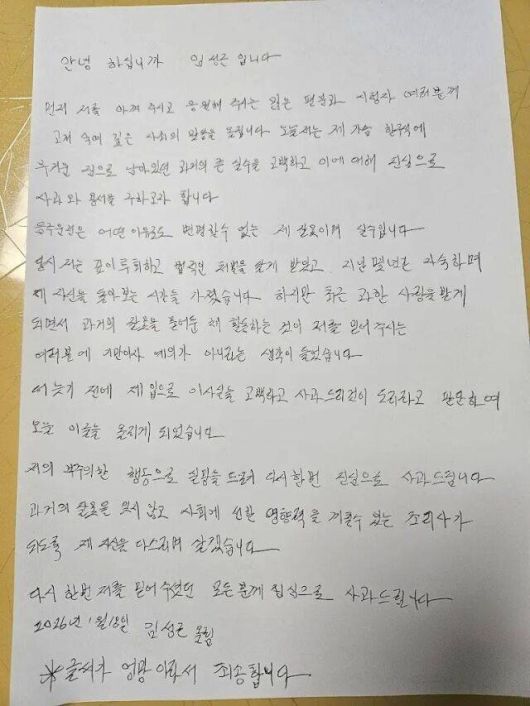 안녕 하십니까 임성근 입니다
먼저 저를 아껴 주시고 응원해 주시는 많은 팬분과 시청자 여러분께
고개 숙여 깊은 사죄의 말씀을 드립니다 오늘 저는 제 가슴 한구석에
무거운 짐으로 남아있던 과거의 큰 실수를 고백하고 이에 대해 진심으로
사과와 용서를 구하고자 합니다
음주운전은 어떤 이유로도 변명할수 없는 제 잘못이며 실수입니다
당시 저는 깊이 후회하고 법적인 처벌을 달게 받았고 지난 몇년간 자숙하며
제 자신을 돌아보는 시간을 가졌습니다 하지만 최근 과한 사랑을 받게
되면서 과거의 잘못을 묻어둔 채 활동하는 것이 저를 믿어 주시는
여러분에 기만이자 예의가 아니라는 생각이 들었습니다
더 늦기 전에 제 입으로 이사실을 고백하고 사과 드리는것이 도리라고 판단하여
오늘 이글을 올리게 되었습니다
저의 부주의한 행동으로 실망을 드려 다시한번 진심으로 사과 드립니다
과거의 잘못을 잊지 않고 사회에 선한 영향력을 끼칠수 있는 조리사가
되도록 제 자신을 다스리며 살겠습니다
다시 한번 저를 믿어 주셨던 모든 분께 진심으로 사과드립니다
2026년 1월 18일 임성근 올림
※글씨가 엉망 이라서 죄송합니다